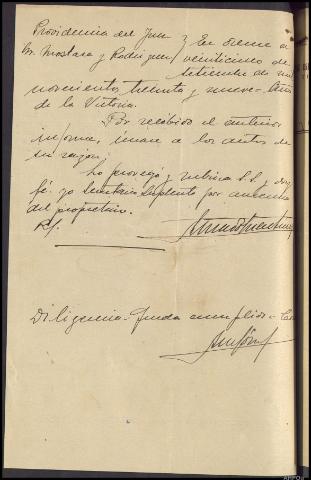 Providencia del Juez
Sr. Mostaza y Rodriguez
En Orense a
veinticinco de
Setiembre de mil
novecientos treinta y nueve - Año
de la Victoria.
Por recibido el anterior
informe, unase a los autos de
su razón;
Lo proveyó y rubrica S.S. y doy
fé. yo Secretario Suplente por ausencia
del propietario.
Rf.
Diligencia - Queda cumplido -